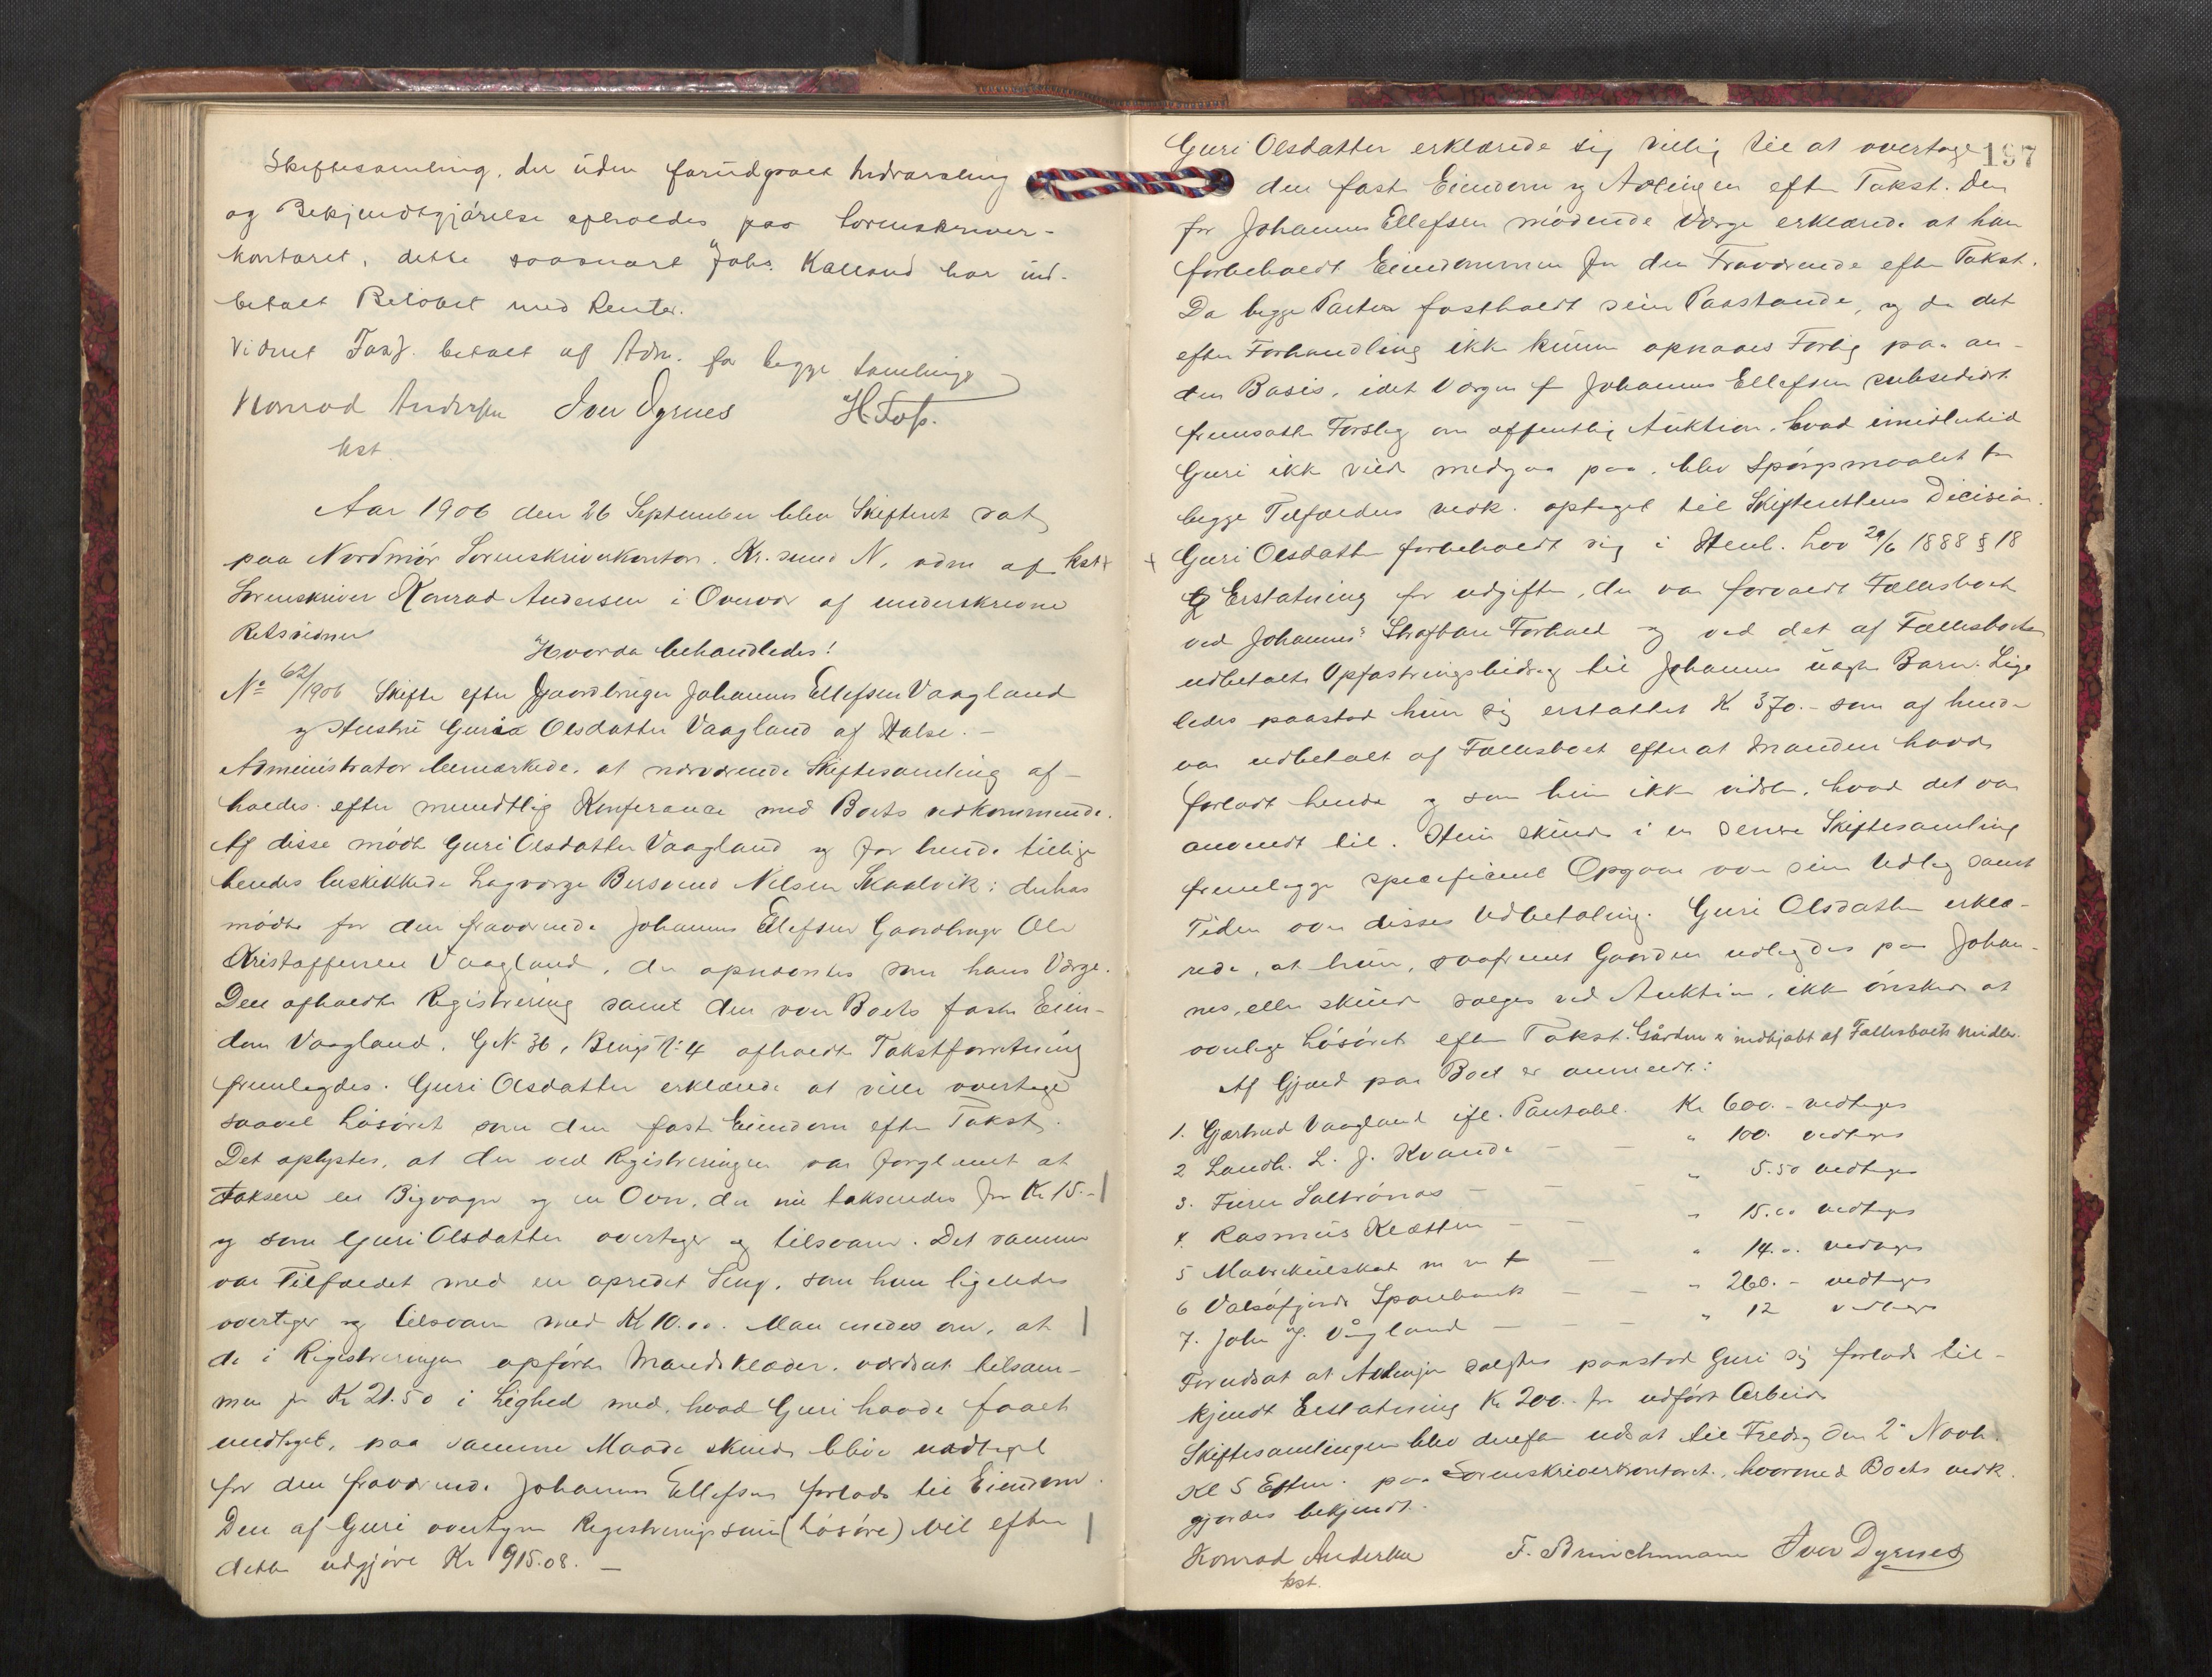 Skiftesamling, der uden forudgaaet Indvarsling
og Bekjendtgjørelse afholdes paa Sorenskriver-
kontoret, dette saasnart Johs. Kalland har ind-
betalt Beløbet med Renter.
Vidnet Foss. betalt af Adm. for begge Samlinger
Konrad Andersen Iver Dyrnes H. Foss.
kst.
Aar 1906 den 26 September blev Skifteret sat
paa Nordmør Sorenskriverkontor, Kr.sund N, adm af kst
Sorenskriver Konrad Andersen i Overvær af underskrevne
Retsvidner
Hvorda behandledes!
No 62/1906 Skifte efter Gaardbruger Johannes Ellefsen Vaagland
og Hustru Guri Olsdatter Vaagland af Halse. –
Administrator bemærkede, at nærværende Skiftesamling af-
holdes efter mundtlig Konferance med Boets vedkommende.
Af disse mødte Guri Olsdatter Vaagland og for hende tillige
hendes beskikkede Lagværge Bersvend Nilsen Skaalvik; derhos
mødte for den fraværende Johannes Ellefsen Gaardbruger Ole
Kristoffersen Vaagland, der opnævntes som hans Værge.
Den afholdte Registrering samt den over Boets faste Eien-
dom Vaagland, G.N. 36, Brugs N: 4 afholdte Takstforretning
fremlagdes. Guri Olsdatter erklærede at ville overtage
saavel Løsøret som den faste Eiendom efter Takst.
Det oplystes, at der ved Registreringen var forglemt at
taksere en Bigvogn og en Ovn, der nu takseredes for Kr 15.–
og som Guri Olsdatter overtager og tilsvarer. Det samme
var Tilfældet med en opredet Seng, som hun ligeledes
overtager og tilsvarer med Kr 10.00. Man enedes om, at
de i Registreringen opførte Mandsklæder, værdsat tilsam-
men for Kr 21.50 i Lighed med, hvad Guri havde faaet
undtaget, paa samme Maade skulde blive undtaget
for den fraværende Johannes Ellefsen forlods til Eiendom.
Den af Guri overtagne Registreringssum (Løsøre) vil efter
dette udgjøre Kr 915.08. –
197
Guri Olsdatter erklærede sig villig til at overtage
den faste Eiendom og Avlingen efter Takst. Den
for Johannes Ellefsen mødende Værge erklærede at han
forbeholdt Eiendommen for den Fraværende efter Takst.
Da begge Parter fastholdt sine Paastande, og da det
efter Forhandling ikke kunne opnaaes Forlig paa an-
den Basis, idet Værgen f Johannes Ellefsen subsidiært
fremsatte Forslag om offentlig Auktion, hvad imidlertid
Guri ikke vilde medgaa paa, blev Spørgsmaalet for
begge Tilfældes vedk. optaget til Skifterettens Decision.
+ Guri Olsdatter forbeholdt sig i Henh. Lov 29/6 1888 § 18
Erstatning for udgifter, der var forvoldt Fællesboet
ved Johannes' Strafbare Forhold og ved det af Fællesboet
udbetalte Opfostringsbidrag til Johannes uægte Barn. Lige
ledes paastod hun sig erstattet Kr 370.– som af hende
var udbetalt af Fællesboet efterat Manden havde
forladt hende og som hun ikke vidste, hvad det var
anvendt til. Hun skulde i en senere Skiftesamling
fremlægge specificeret Opgave over sine Udlæg samt
Tiden over disses Udbetaling. Guri Olsdatter erklæ-
rede, at hun, saafremt Gaarden udlagdes paa Johan-
nes, eller skulde sælges ved Auktion, ikke ønskede at
overtage Løsøret efter Takst. Gården er indkjøbt af Fællesboets Midler.
Af Gjæld paa Boet er anmeldt:
1. Gjertrud Vaagland ifl. Pantobl. Kr 600.– vedtages
2 Landh. L. J. Kvande – – " 100. vedtages
3. Saltrønas – – – " 5.50 vedtages
4. Rasmus Kletten – – " 15.00 vedtages
5 Matrikulskat m m – " 14.. vedtages
6 Valsøfjords Sparebank – – " 260.– vedtages
7. John J. Vågland – – – " 12 vedtages
Forudsat at Avlingen sælges paastod Guri sig forlods til-
kjendt Erstatning Kr 200.– for udført Arbeide
Skiftesamlingen blev derefter udsat til Fredag den 2. Novb.
Kl 5 Efterm. paa Sorenskriverkontoret, hvormed Boets vedk.
gjordes bekjendt.
Konrad Andersen F. Brinchmann Iver Dyrnes
kst.